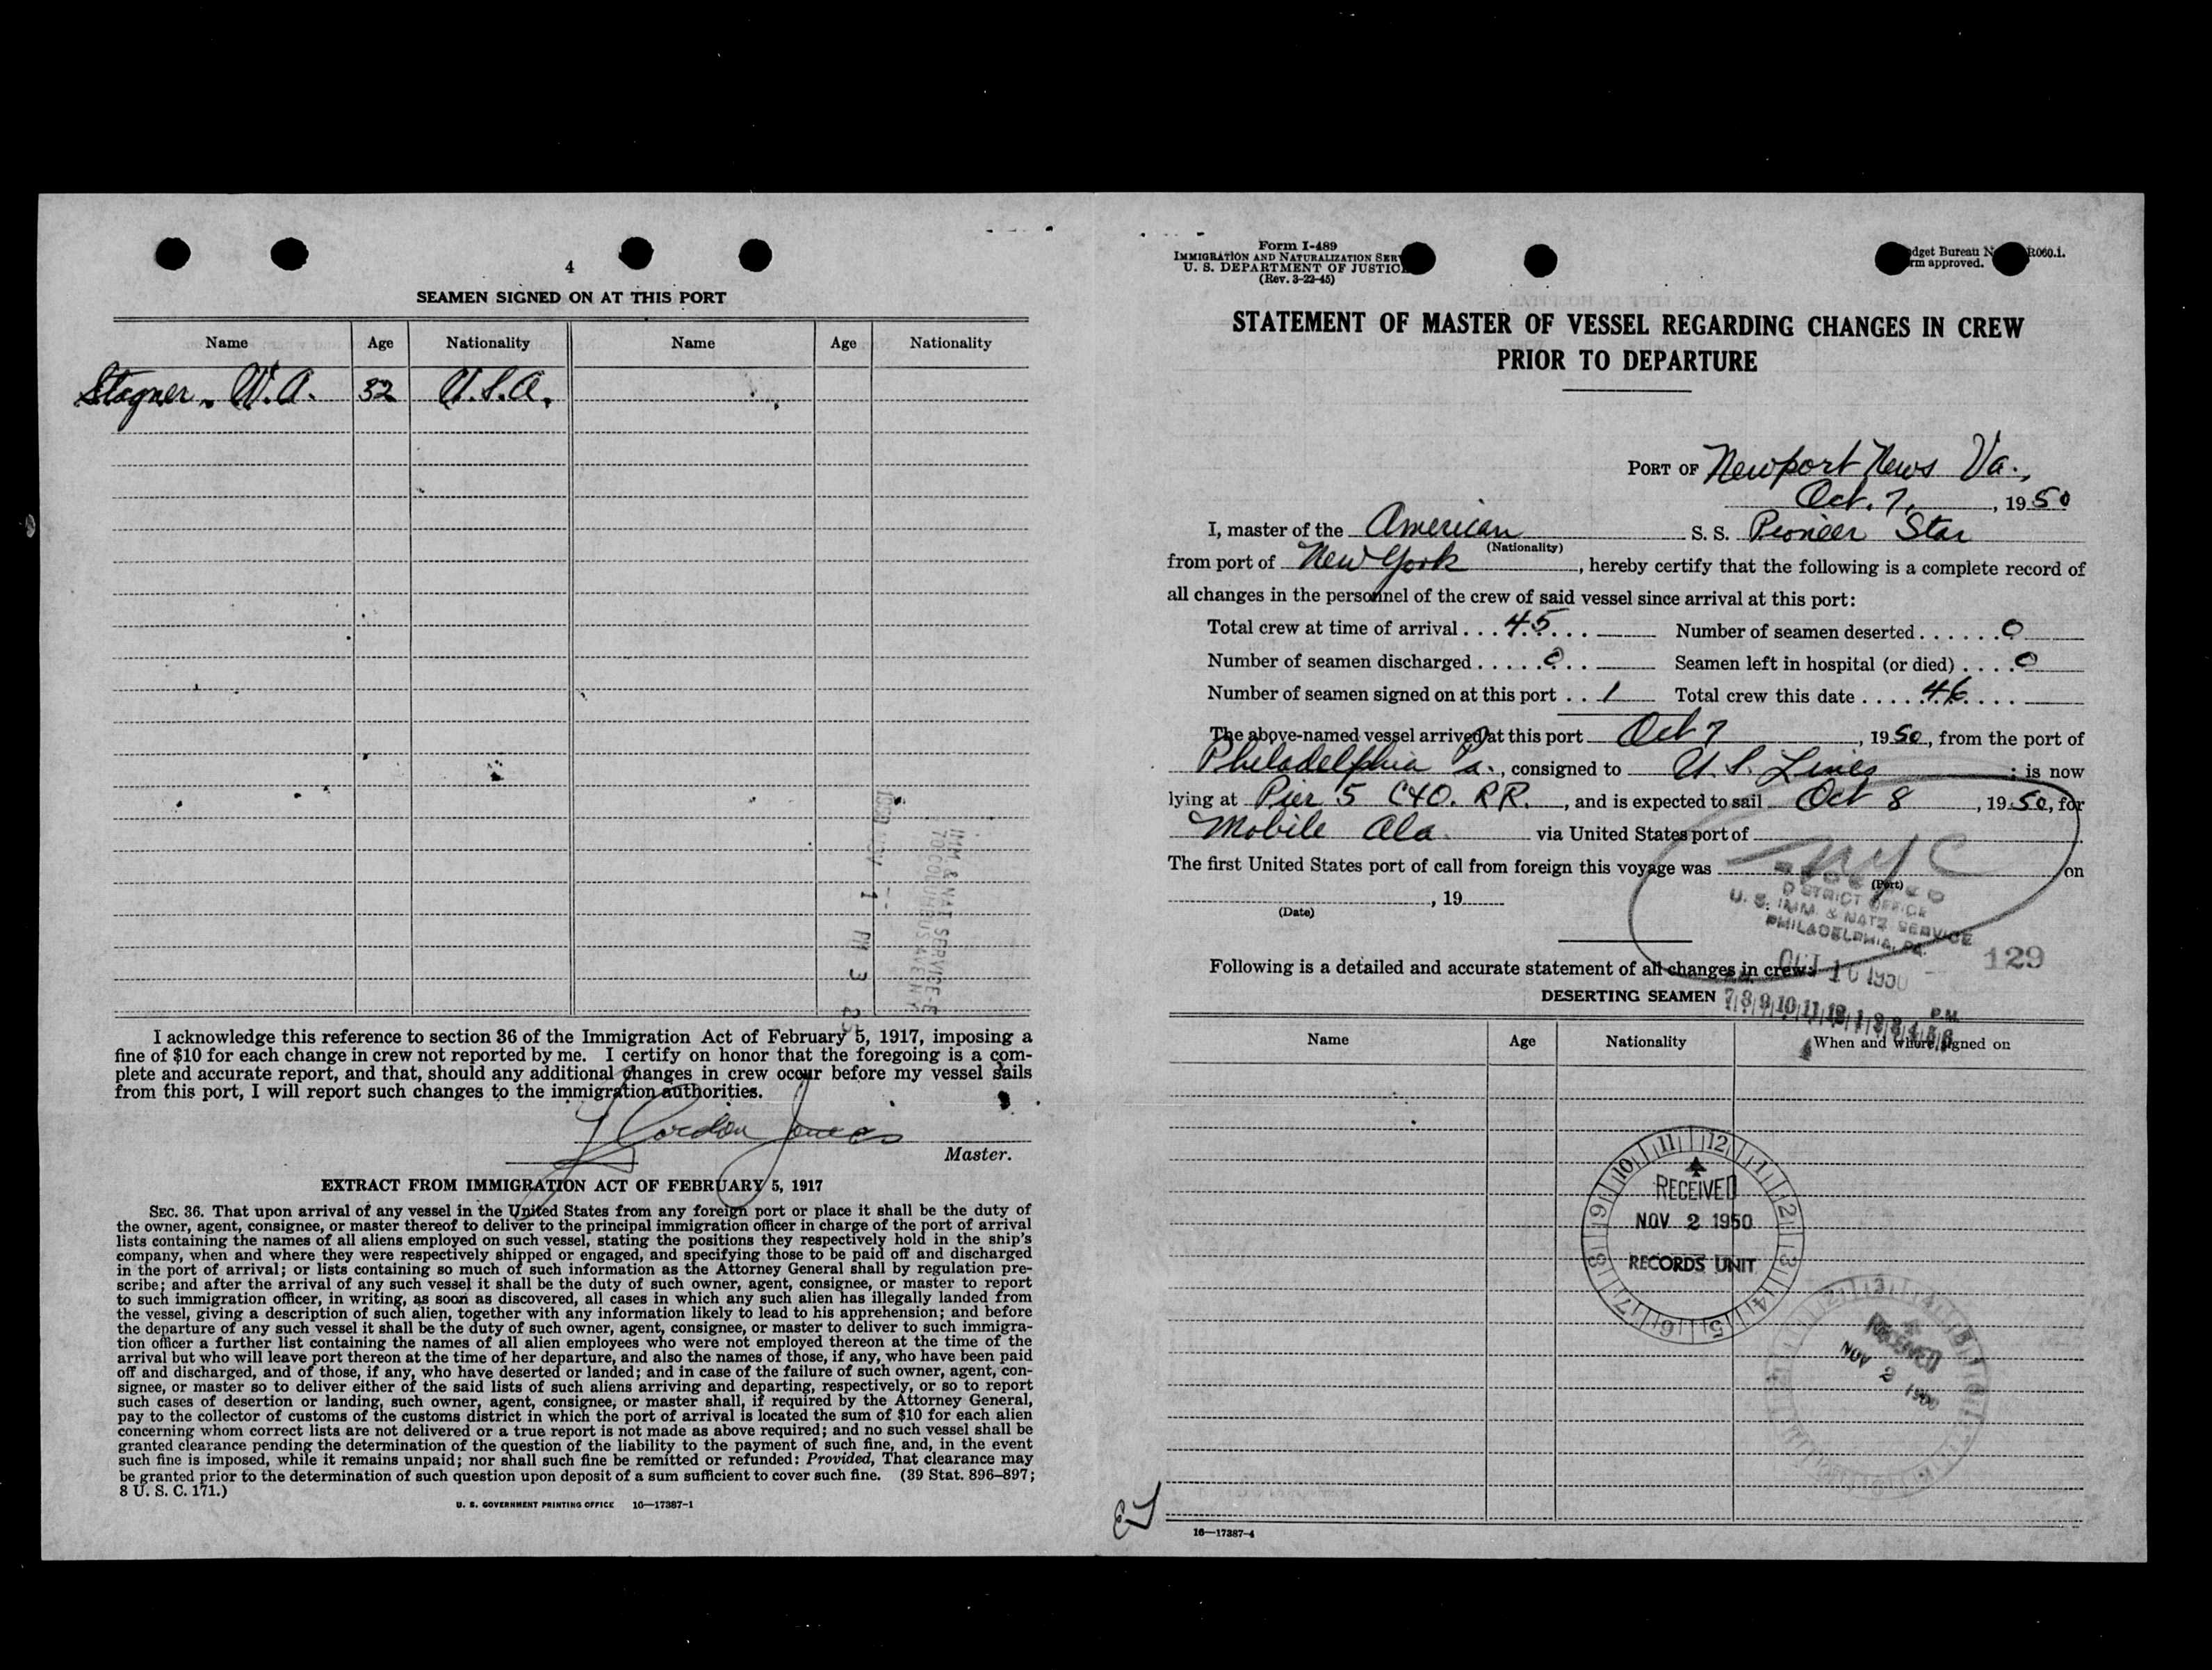 4
SEAMEN SIGNED ON AT THIS PORT
Name Age Nationality Name Age Nationality
Stagner, W.A. 32 U.S.A.
IMM & NAT SERVICE
70 COLUMBUS AVE N Y
I acknowledge this reference to section 36 of the Immigration Act of February 5, 1917, imposing a
fine of $10 for each change in crew not reported by me. I certify on honor that the foregoing is a com-
plete and accurate report, and that, should any additional changes in crew occur before my vessel sails
from this port, I will report such changes to the immigration authorities.
Master.
EXTRACT FROM IMMIGRATION ACT OF FEBRUARY 5, 1917
SEC. 36. That upon arrival of any vessel in the United States from any foreign port or place it shall be the duty of
the owner, agent, consignee, or master thereof to deliver to the principal immigration officer in charge of the port of arrival
lists containing the names of all aliens employed on such vessel, stating the positions they respectively hold in the ship's
company, when and where they were respectively shipped or engaged, and specifying those to be paid off and discharged
in the port of arrival; or lists containing so much of such information as the Attorney General shall by regulation pre-
scribe; and after the arrival of any such vessel it shall be the duty of such owner, agent, consignee, or master to report
to such immigration officer, in writing, as soon as discovered, all cases in which any such alien has illegally landed from
the vessel, giving a description of such alien, together with any information likely to lead to his apprehension; and before
the departure of any such vessel it shall be the duty of such owner, agent, consignee, or master to deliver to such immigra-
tion officer a further list containing the names of all alien employees who were not employed thereon at the time of the
arrival but who will leave port thereon at the time of her departure, and also the names of those, if any, who have been paid
off and discharged, and of those, if any, who have deserted or landed; and in case of the failure of such owner, agent, con-
signee, or master so to deliver either of the said lists of such aliens arriving and departing, respectively, or so to report
such cases of desertion or landing, such owner, agent, consignee, or master shall, if required by the Attorney General,
pay to the collector of customs of the customs district in which the port of arrival is located the sum of $10 for each alien
concerning whom correct lists are not delivered or a true report is not made as above required; and no such vessel shall be
granted clearance pending the determination of the question of the liability to the payment of such fine, and, in the event
such fine is imposed, while it remains unpaid; nor shall such fine be remitted or refunded: Provided, That clearance may
be granted prior to the determination of such question upon deposit of a sum sufficient to cover such fine. (39 Stat. 896–897;
8 U. S. C. 171.)
U. S. GOVERNMENT PRINTING OFFICE 16—17387-1
Form I-489
IMMIGRATION AND NATURALIZATION SER
U. S. DEPARTMENT OF JUSTIC
(Rev. 3-22-45)
dget Bureau N R060.1.
rm approved.
STATEMENT OF MASTER OF VESSEL REGARDING CHANGES IN CREW
PRIOR TO DEPARTURE
PORT OF Newport News Va.,
Oct. 7, , 1950
I, master of the American S. S. Pioneer Star
(Nationality)
from port of New York , hereby certify that the following is a complete record of
all changes in the personnel of the crew of said vessel since arrival at this port:
Total crew at time of arrival . . . 45 . . . Number of seamen deserted . . . . . . 0
Number of seamen discharged . . . . . 0 . . Seamen left in hospital (or died) . . . . 0
Number of seamen signed on at this port . . 1 Total crew this date . . . . 46 . . . .
The above-named vessel arrived at this port Oct 7 , 1950, from the port of
Philadelphia Pa., consigned to U.S. Lines ; is now
lying at Pier 5 C&O. RR. , and is expected to sail Oct 8 , 1950, for
Mobile Ala via United States port of
The first United States port of call from foreign this voyage was NYC on
(Port)
, 19
(Date)
DISTRICT OFFICE
U. S. IMM. & NATZ SERVICE
PHILADELPHIA, PA.
OCT 10 1950
129
Following is a detailed and accurate statement of all changes in crew:
DESERTING SEAMEN
7 8 9 10 11 12 1 2 3 4 5 6 P.M.
Name Age Nationality When and where signed on
11 12 1 2 3 4 5 6 7 8 9 10
RECEIVED
NOV 2 1950
RECORDS UNIT
RECEIVED
NOV 2 1950
16—17387-4